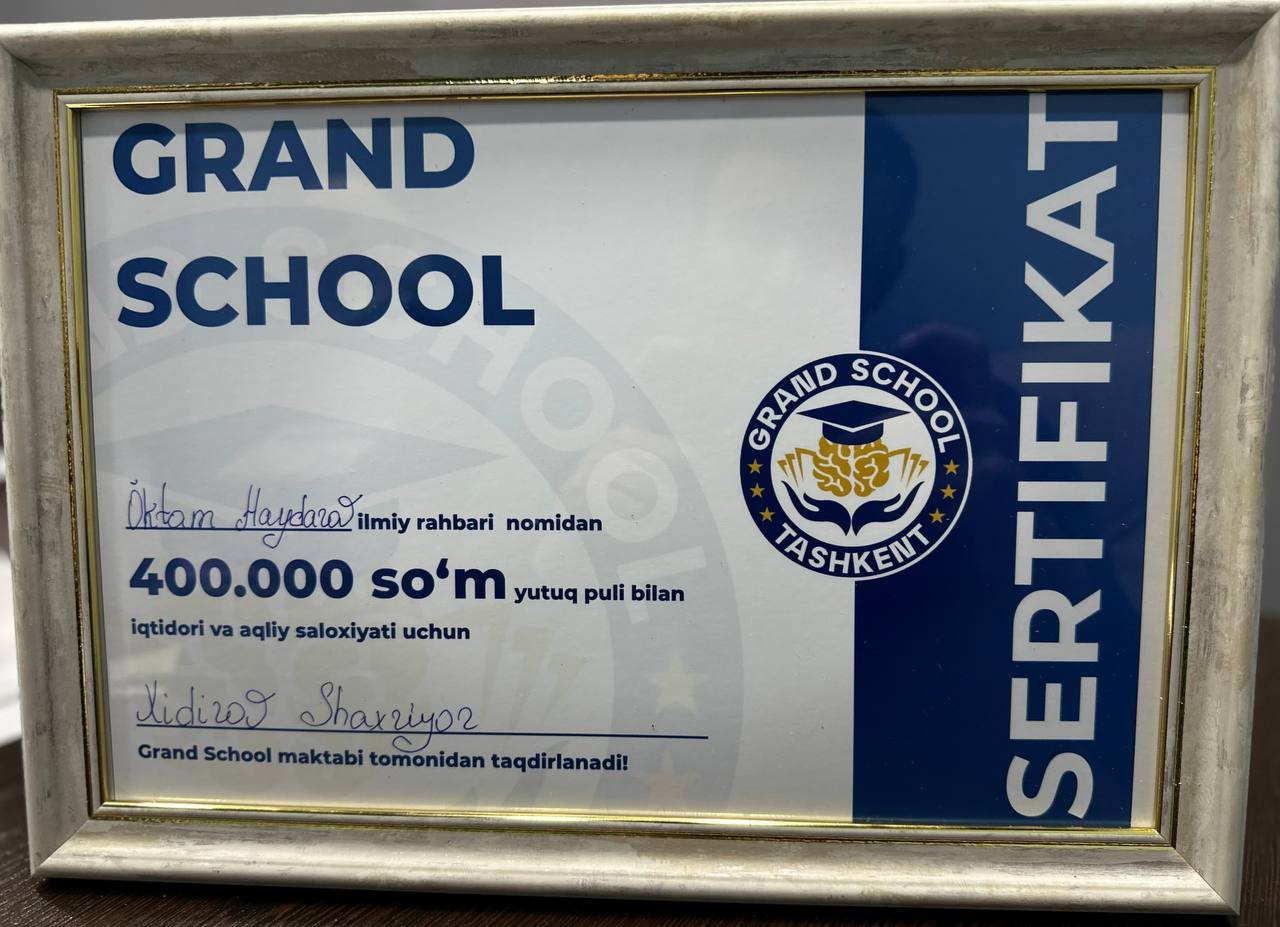 GRAND
SCHOOL
Öktam Haydarov ilmiy rahbari nomidan
400.000 so‘m yutuq puli bilan
iqtidori va aqliy saloxiyati uchun
Xidirov Shaxriyor
Grand School maktabi tomonidan taqdirlanadi!
GRAND SCHOOL
TASHKENT
SERTIFIKAT